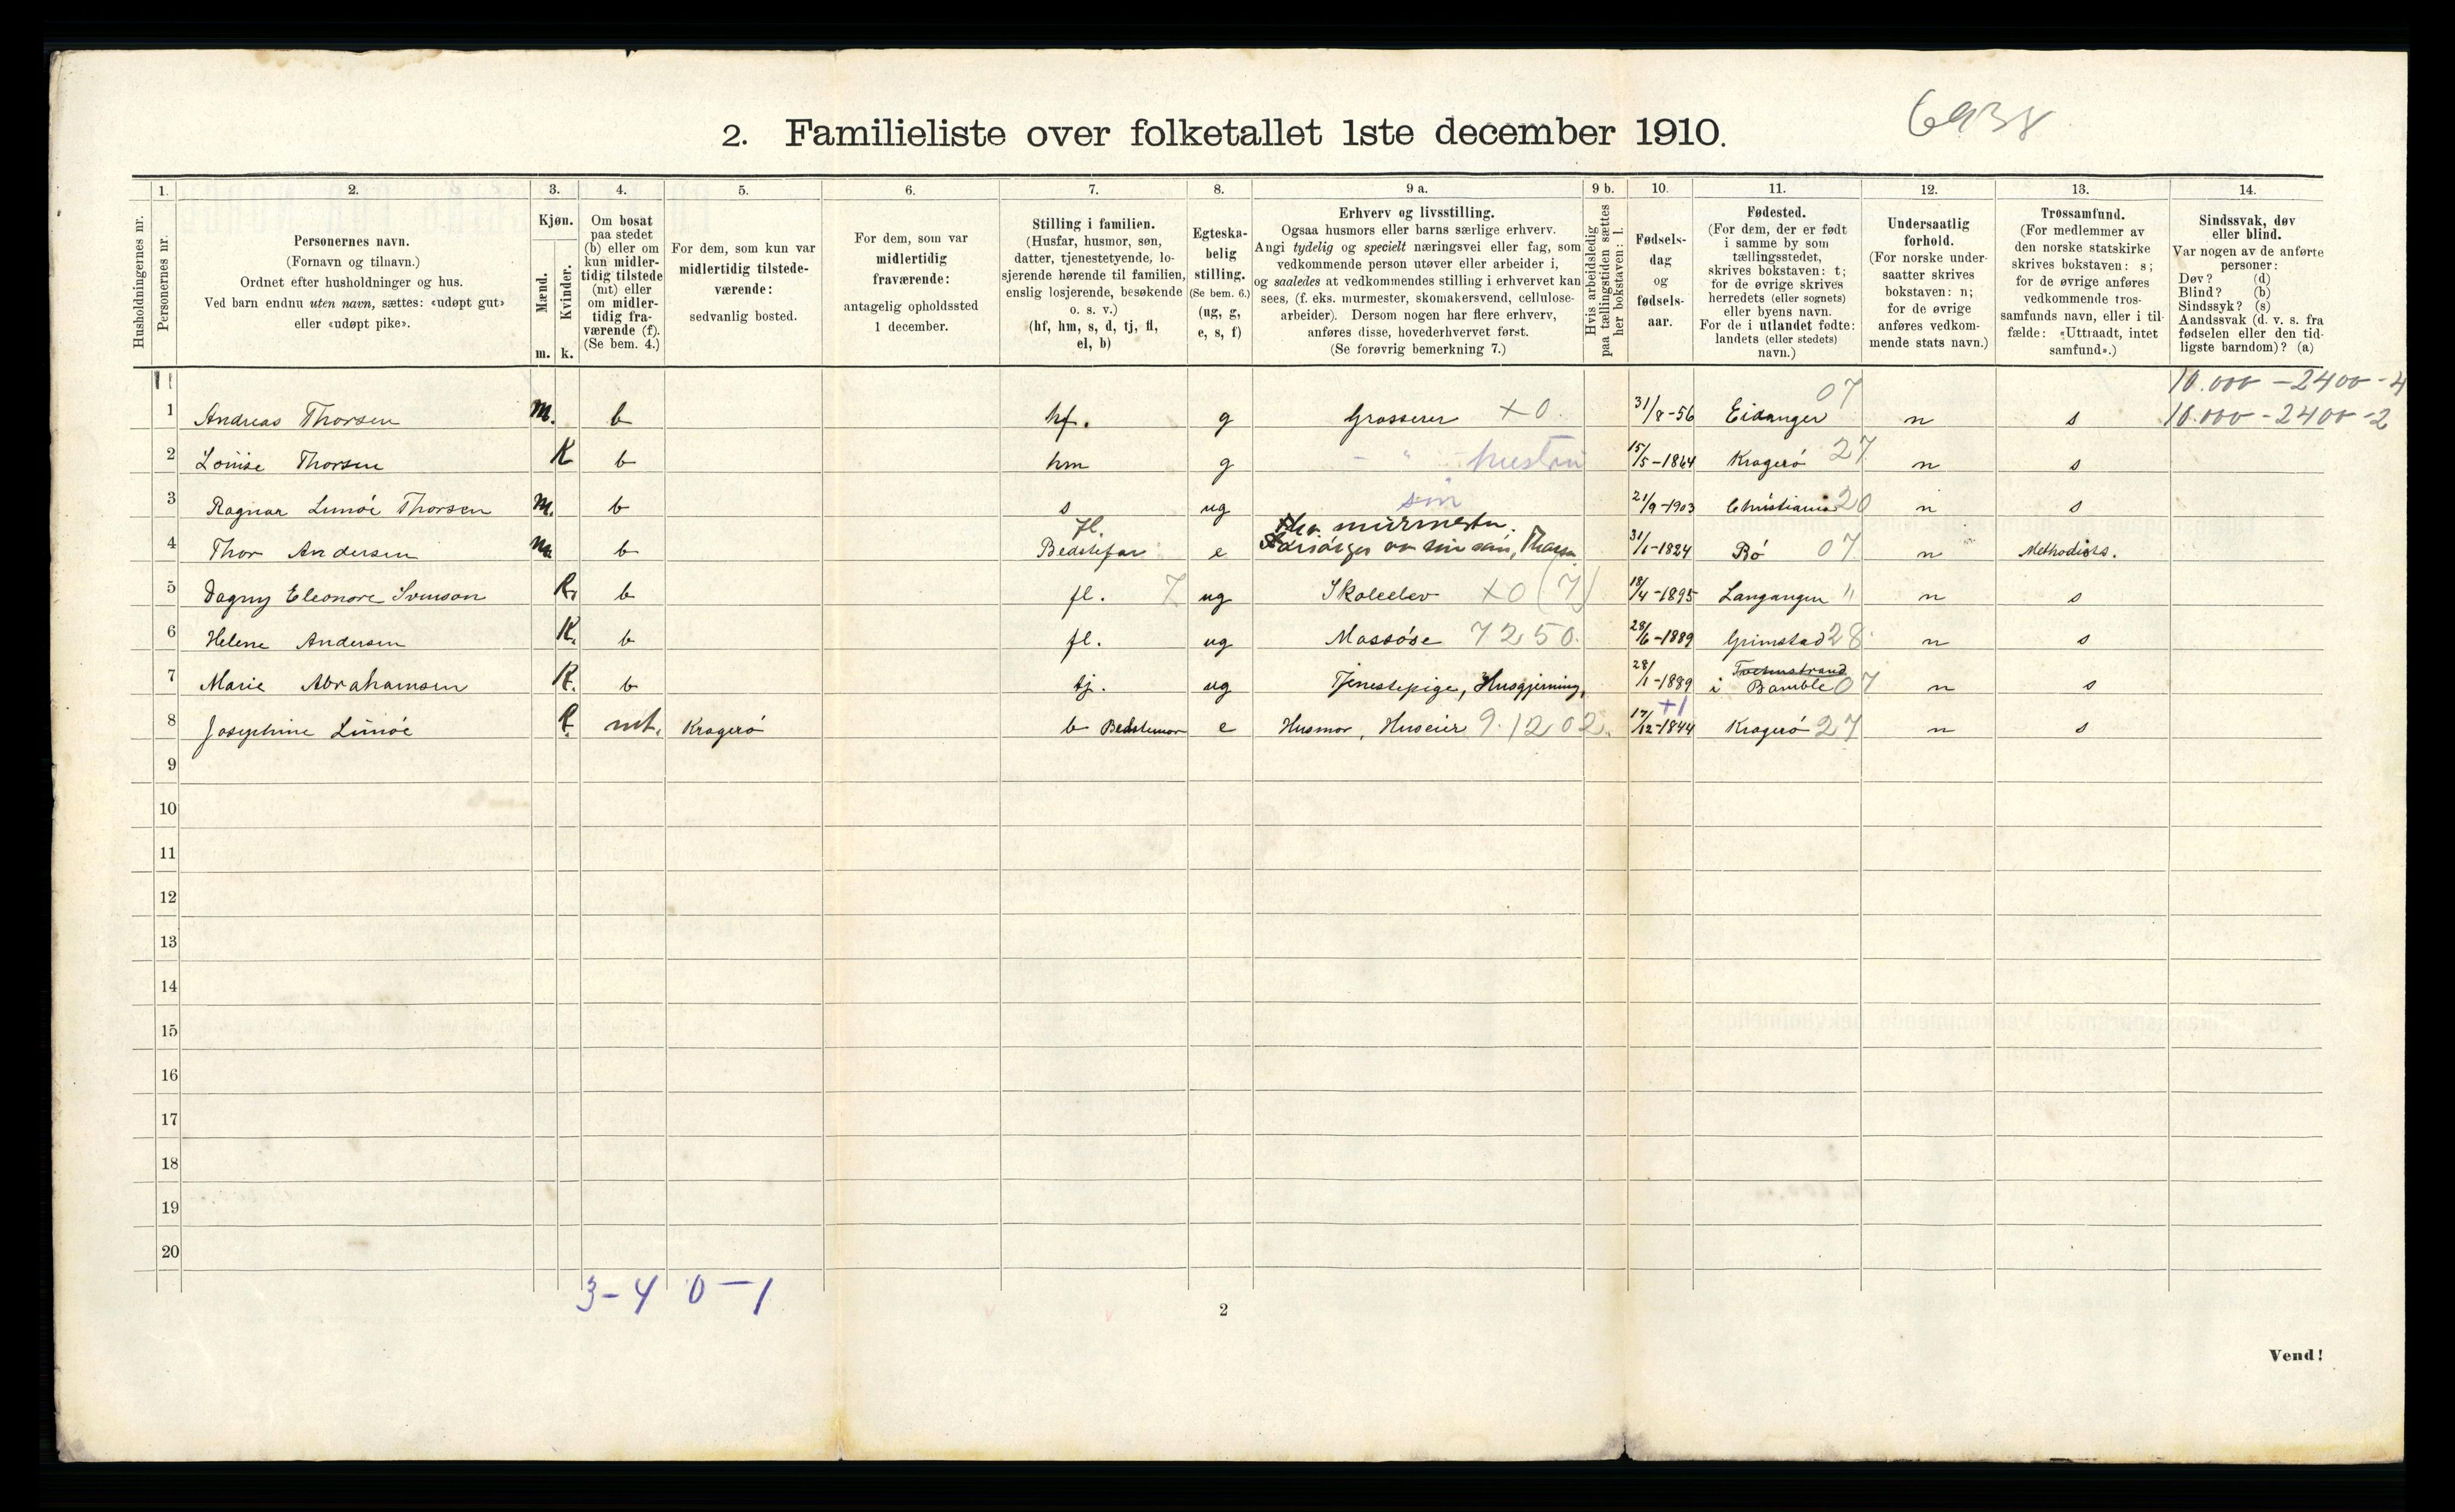 6938
2. Familieliste over folketallet 1ste december 1910.
1. 2. 3. 4. 5. 6. 7. 8. 9 a. 9 b. 10. 11. 12. 13. 14.
Husholdningernes nr.
Personernes nr.
Personernes navn.
(Fornavn og tilnavn.)
Ordnet efter husholdninger og hus.
Ved barn endnu uten navn, sættes: «udøpt gut»
eller «udøpt pike».
Kjøn.
Mænd.
Kvinder.
m. k.
Om bosat
paa stedet
(b) eller om
kun midler-
tidig tilstede
(mt) eller
om midler-
tidig fra-
værende (f).
(Se bem. 4.)
For dem, som kun var
midlertidig tilstede-
værende:
sedvanlig bosted.
For dem, som var
midlertidig
fraværende:
antagelig opholdssted
1 december.
Stilling i familien.
(Husfar, husmor, søn,
datter, tjenestetyende, lo-
sjerende hørende til familien,
enslig losjerende, besøkende
o. s. v.)
(hf, hm, s, d, tj, fl,
el, b)
Egteska-
belig
stilling.
(Se bem. 6.)
(ug, g,
e, s, f)
Erhverv og livsstilling.
Ogsaa husmors eller barns særlige erhverv.
Angi tydelig og specielt næringsvei eller fag, som
vedkommende person utøver eller arbeider i,
og saaledes at vedkommendes stilling i erhvervet kan
sees, (f. eks. murmester, skomakersvend, cellulose-
arbeider). Dersom nogen har flere erhverv,
anføres disse, hovederhvervet først.
(Se forøvrig bemerkning 7.)
Hvis arbeidsledig
paa tællingstiden sættes
her bokstaven: l.
Fødsels-
dag
og
fødsels-
aar.
Fødested.
(For dem, der er født
i samme by som
tællingsstedet,
skrives bokstaven: t;
for de øvrige skrives
herredets (eller sognets)
eller byens navn.
For de i utlandet fødte:
landets (eller stedets)
navn.)
Undersaatlig
forhold.
(For norske under-
saatter skrives
bokstaven: n;
for de øvrige
anføres vedkom-
mende stats navn.)
Trossamfund.
(For medlemmer av
den norske statskirke
skrives bokstaven: s;
for de øvrige anføres
vedkommende tros-
samfunds navn, eller i til-
fælde: «Uttraadt, intet
samfund».)
Sindssvak, døv
eller blind.
Var nogen av de anførte
personer:
Døv? (d)
Blind? (b)
Sindssyk? (s)
Aandssvak (d. v. s. fra
fødselen eller den tid-
ligste barndom)? (a)
10.000 - 2400 - 4
1 Andreas Thorsen M. b hf. g Grosserer x0 31/8-56 Eidanger 07 n s 10.000 - 2400 - 2
2 Louise Thorsen K b hm g - " hustru 15/5-1864 Kragerö 27 n s
3 Ragnar Lunöe Thorsen M. b s ug søn 21/9-1903 Christiania 20 n s
fl. murmester.
4 Thor Andersen m b Bedstefar e Forsörges av sin sön, Thorsen 31/1-1824 Bö 07 n Methodists.
5 Dagny Eleonore Svenson K. b fl. 7 ug Skoleelev x0 (7) 18/4-1895 Langangen " n s
6 Helene Andersen K. b fl. ug Massöse 7250. 28/6-1889 Grimstad 28 n s
7 Marie Abrahamsen K. b tj. ug Tjenestepige, Husgjerning, 28/1-1889 i Bamble 07 n s
8 Josephine Lunöe K. mt. Kragerö b Bedstemor e Husmor, Huseier 9.1202. 17/12-1844 +1 Kragerö 27 n s
9
10
11
12
13
14
15
16
17
18
19
20
3-4 0-1
2
Vend!